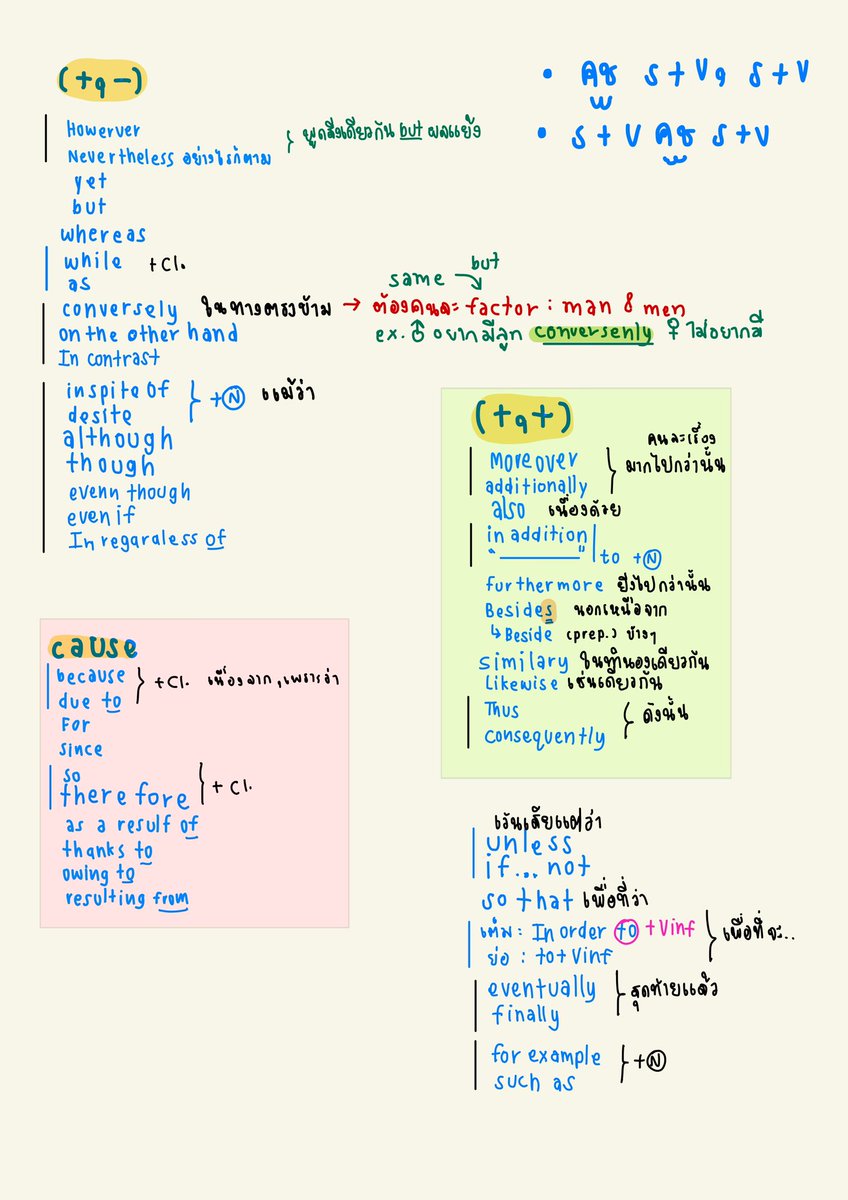 (+,-)
• คช S+V, S+V
• S+V คช S+V
Howerver
Nevertheless อย่างไรก็ตาม } พูดสิ่งเดียวกัน but ผลแย้ง
yet
but
whereas
while +Cl.
as
same but
conversely ในทางตรงข้าม → ต้องคนละ factor : man & men
on the other hand ex. ♂ อยากมีลูก conversenly ♀ ไม่อยากมี
In contrast
inspite of
desite } +N แม้ว่า
although
though
evenn though
even if
In regaraless of
(+,+)
คนละเรื่อง
moreover
additionally } มากไปกว่านั้น
also เนื่องด้วย
in addition
"―" to +N
furthermore ยิ่งไปกว่านั้น
Besides นอกเหนือจาก
↳ Beside (prep.) ข้างๆ
similary ในทำนองเดียวกัน
Likewise เช่นเดียวกัน
Thus
consequently } ดังนั้น
cause
because
due to } +Cl. เนื่องจาก, เพราะว่า
For
since
so
therefore } +Cl.
as a resulf of
thanks to
owing to
resulting from
เว้นเสียแต่ว่า
unless
if...not
so that เพื่อที่ว่า
เต็ม : In order to +Vinf
ย่อ : to+Vinf } เพื่อที่จะ..
eventually
finally } สุดท้ายแล้ว
for example
such as } +N